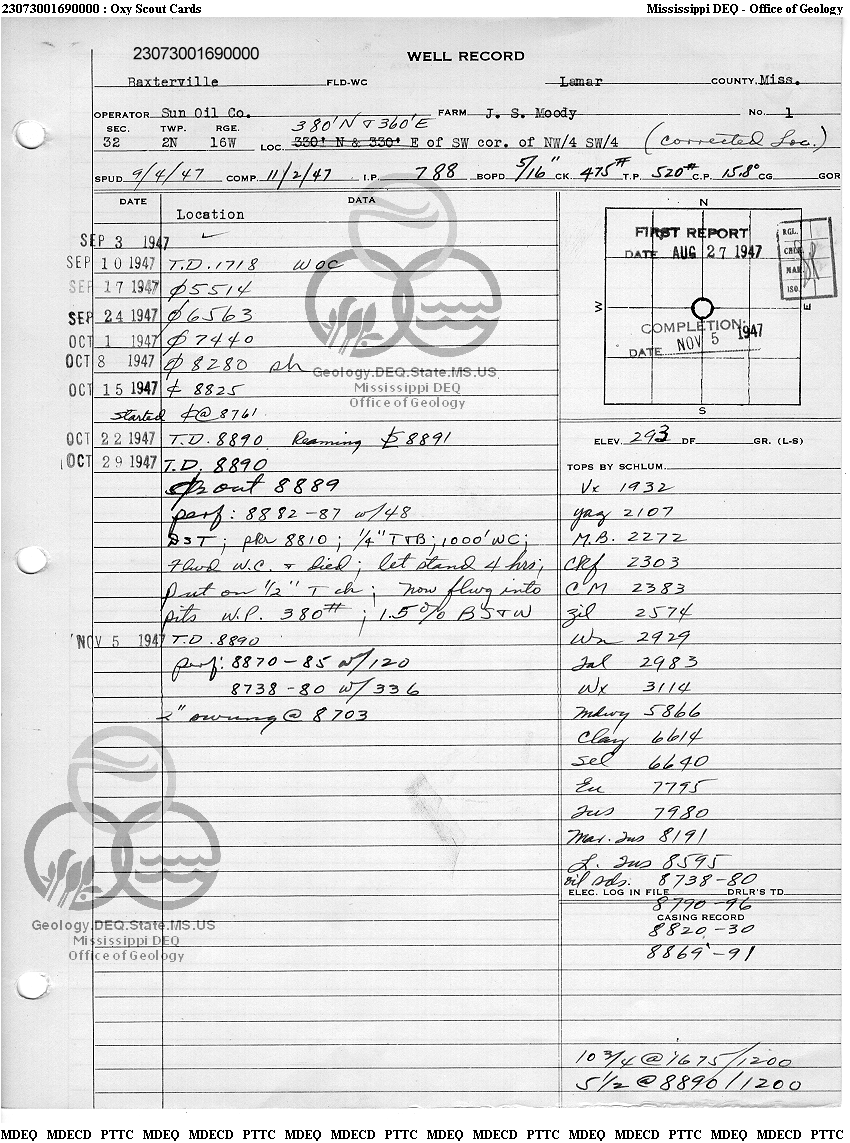 23073001690000 : Oxy Scout Cards Mississippi DEQ - Office of Geology
23073001690000
WELL RECORD
Baxterville FLD-WC Lamar COUNTY, Miss.
OPERATOR Sun Oil Co. FARM J. S. Moody NO. 1
SEC. TWP. RGE. 380' N & 360' E
32 2N 16W LOC. 330' N & 330' E of SW cor. of NW/4 SW/4 (Corrected Loc.)
SPUD 9/4/47 COMP. 11/2/47 I.P. 788 BOPD 5/16" CK. 475# T.P. 520# C.P. 15.8° CG GOR
DATE DATA
Location
SEP 3 1947
SEP 10 1947 T.D. 1718 WOC
SEP 17 1947 5514
SEP 24 1947 6563
OCT 1 1947 7440
OCT 8 1947 8280 sh
OCT 15 1947 8825
Started @ 8761
OCT 22 1947 T.D. 8890 Reaming 8891
OCT 29 1947 T.D. 8890
out 8889
perf: 8882-87 w/48
DST; pkr 8810; 1/4" T&B; 1000' WC;
Flwd W.C. & died; let stand 4 hrs;
Put on 1/2" T ch; now flwg into
pits W.P. 380#; 1.5% BS&W
NOV 5 1947 T.D. 8890
perf: 8870-85 w/120
8738-80 w/336
2" swung @ 8703
N
FIRST REPORT
DATE AUG 27 1947
RGL.
CHK.
MAP.
ISO.
W E
COMPLETION
DATE NOV 5 1947
S
ELEV. 293 DF GR. (L-S)
TOPS BY SCHLUM.
Vx 1932
Yaz 2107
M.B. 2272
Ckf 2303
C M 2383
Zil 2574
Wn 2929
Sal 2983
Wx 3114
Mdwy 5866
Clay 6614
Sel 6640
Eu 7795
Tus 7980
Mar. Tus 8191
L. Tus 8595
oil sds. 8738-80
ELEC. LOG IN FILE DRLR'S TD
8790-96
CASING RECORD
8820-30
8869-91
10 3/4 @ 1675/1200
5 1/2 @ 8890/1200
Geology.DEQ.State.MS.US
Mississippi DEQ
Office of Geology
Geology.DEQ.State.MS.US
Mississippi DEQ
Office of Geology
MDEQ MDECD PTTC MDEQ MDECD PTTC MDEQ MDECD PTTC MDEQ MDECD PTTC MDEQ MDECD PTTC MDEQ MDECD PTTC